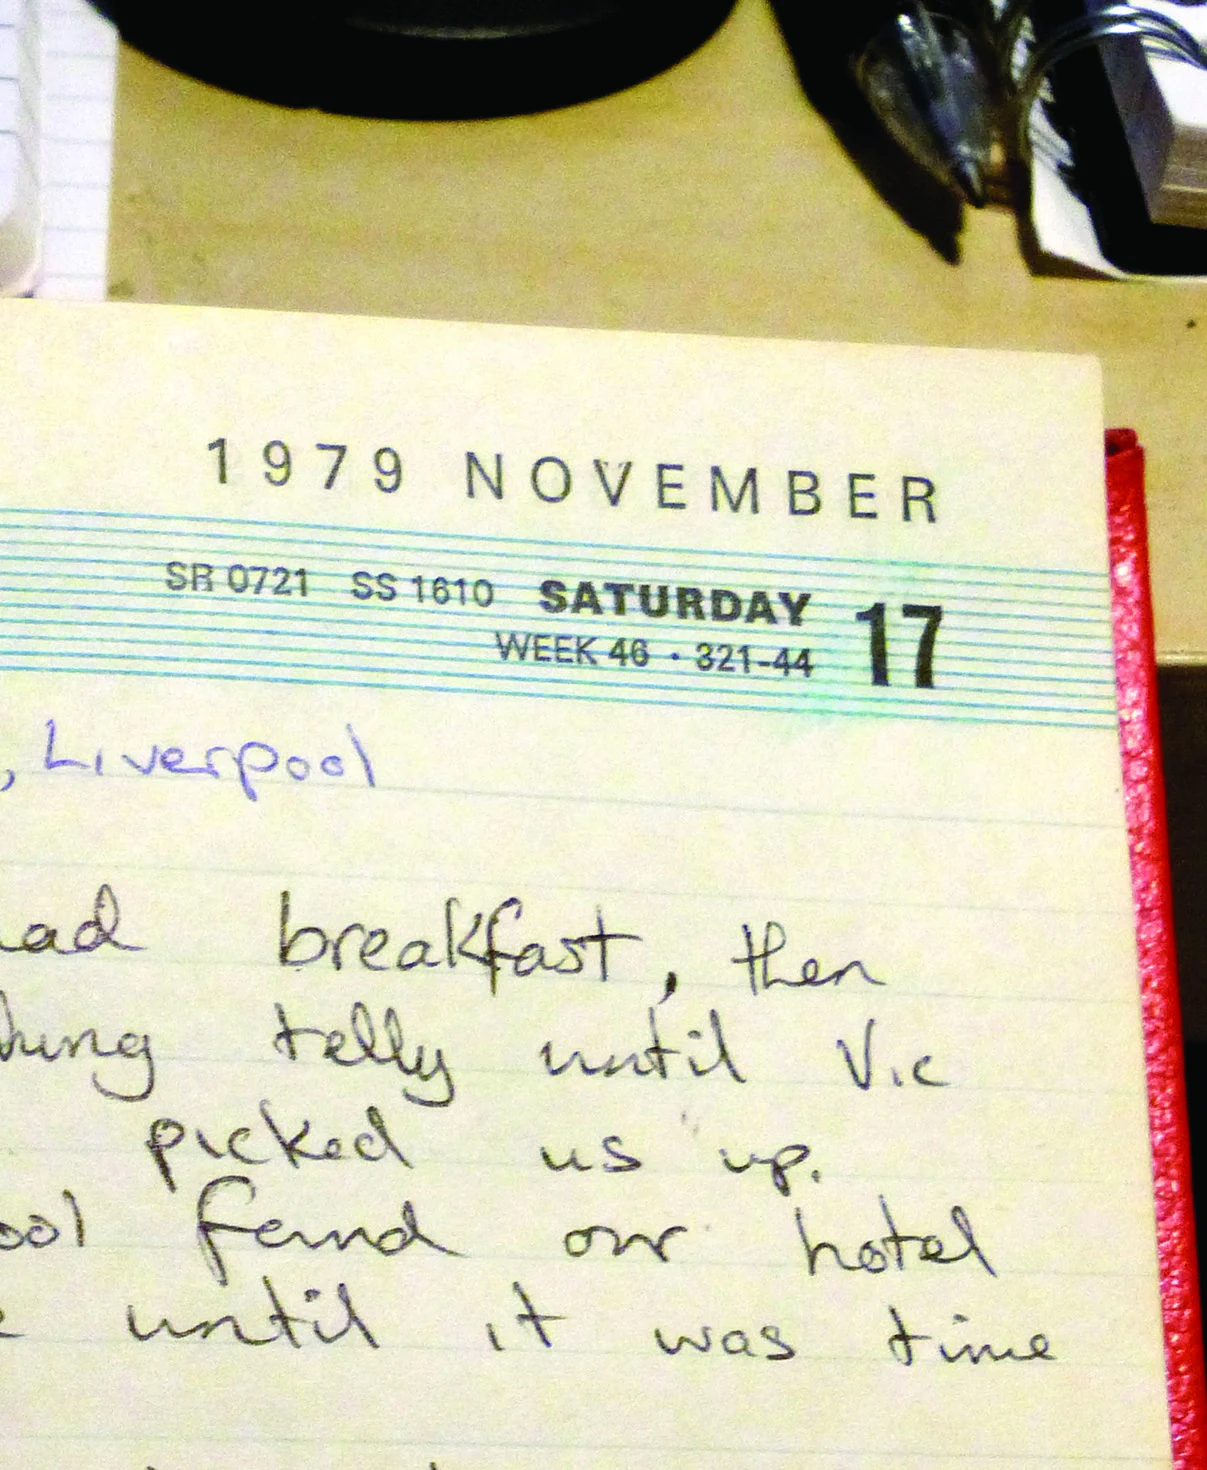 1979 NOVEMBER
SR 0721 SS 1610 SATURDAY 17
WEEK 46 · 321-44
, Liverpool
ad breakfast, then
telly until Vic
picked us up.
ool found our hotel
until it was time